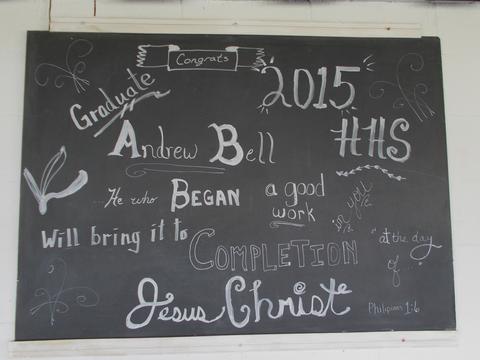 Congrats
Graduate 2015
Andrew Bell HHS
...He who BEGAN a good work in you
Will bring it to COMPLETION "at the day of
Jesus Christ"
Philipians 1:6